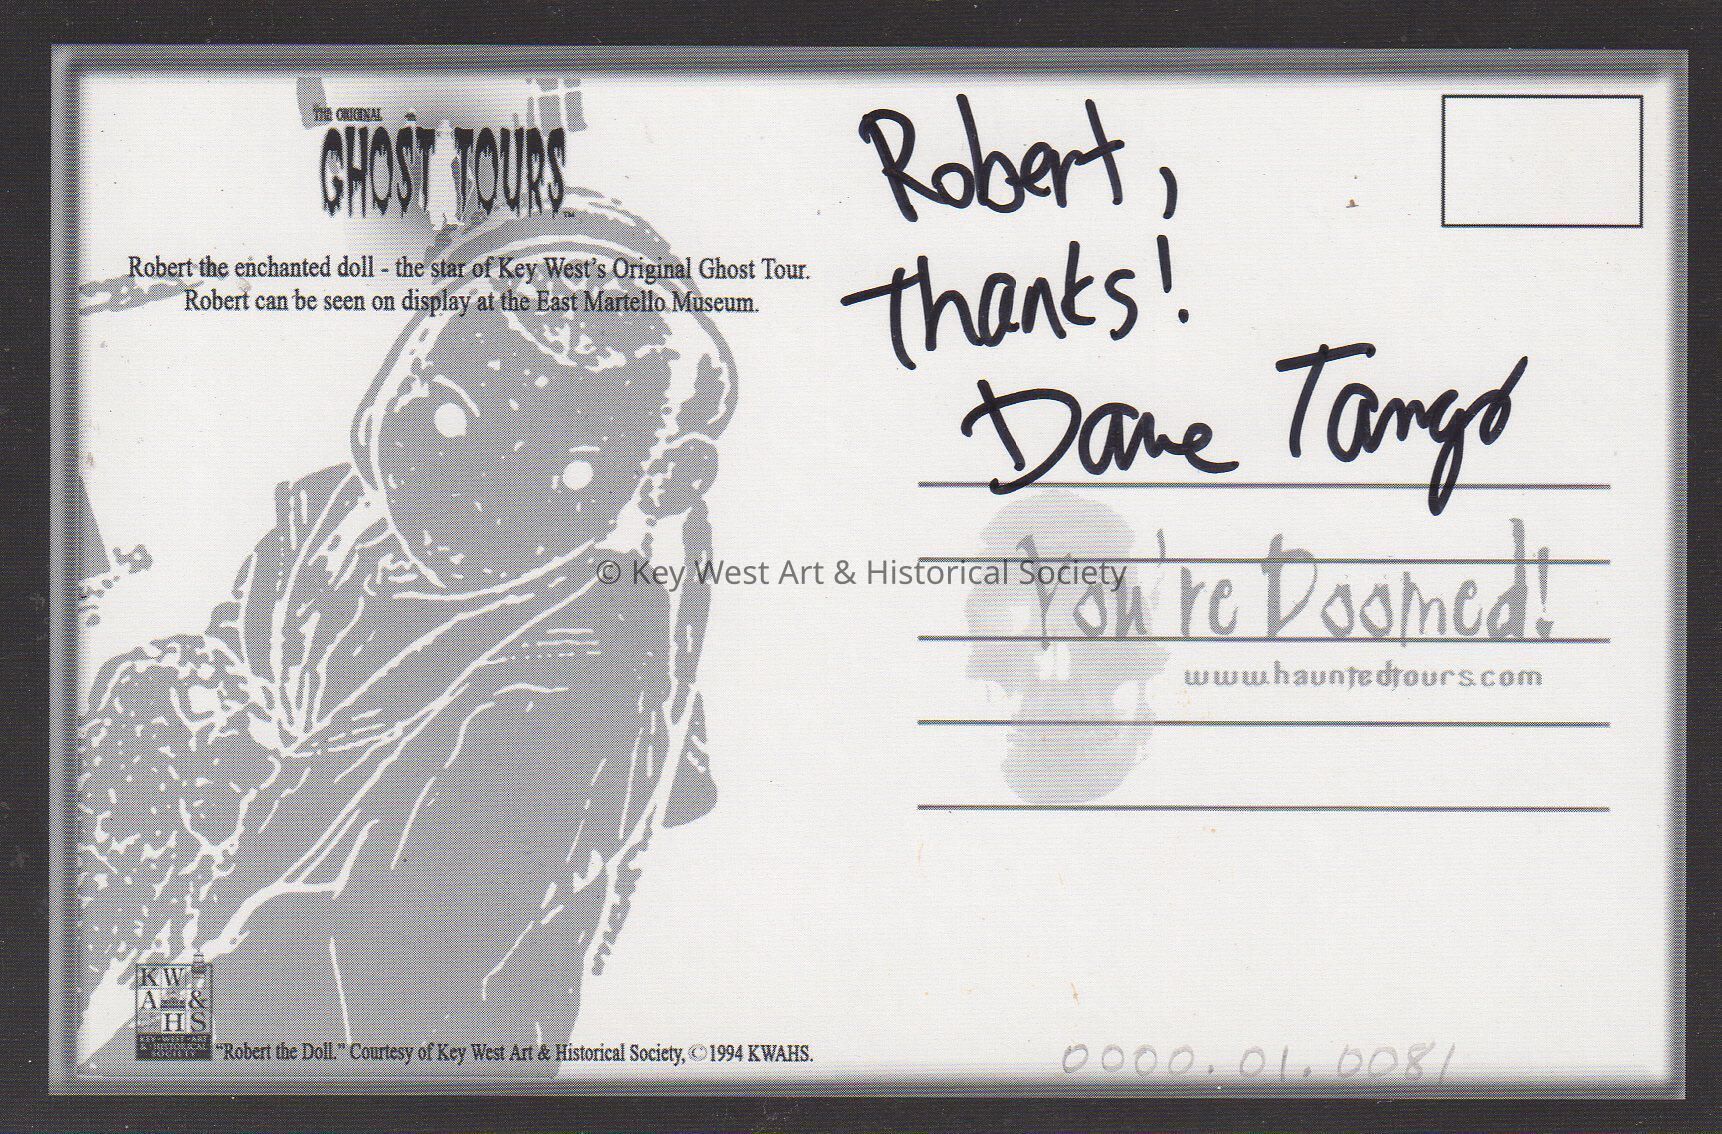 THE ORIGINAL
GHOST TOURS™
Robert the enchanted doll - the star of Key West's Original Ghost Tour.
Robert can be seen on display at the East Martello Museum.
Robert,
thanks!
Dave Tango
© Key West Art & Historical Society
You're Doomed!
www.hauntedtours.com
KW
A &
HS
KEY • WEST • ART
& HISTORICAL
SOCIETY
"Robert the Doll." Courtesy of Key West Art & Historical Society, ©1994 KWAHS.
0000.01.0081